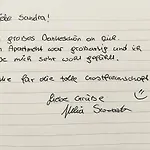 Liebe Sandra!
großes Dankeschön an Dich.
Apartment war großartig und ich
be mich sehr wohl gefühlt.
für die tolle Gastfreundschaft
Liebe Grüße